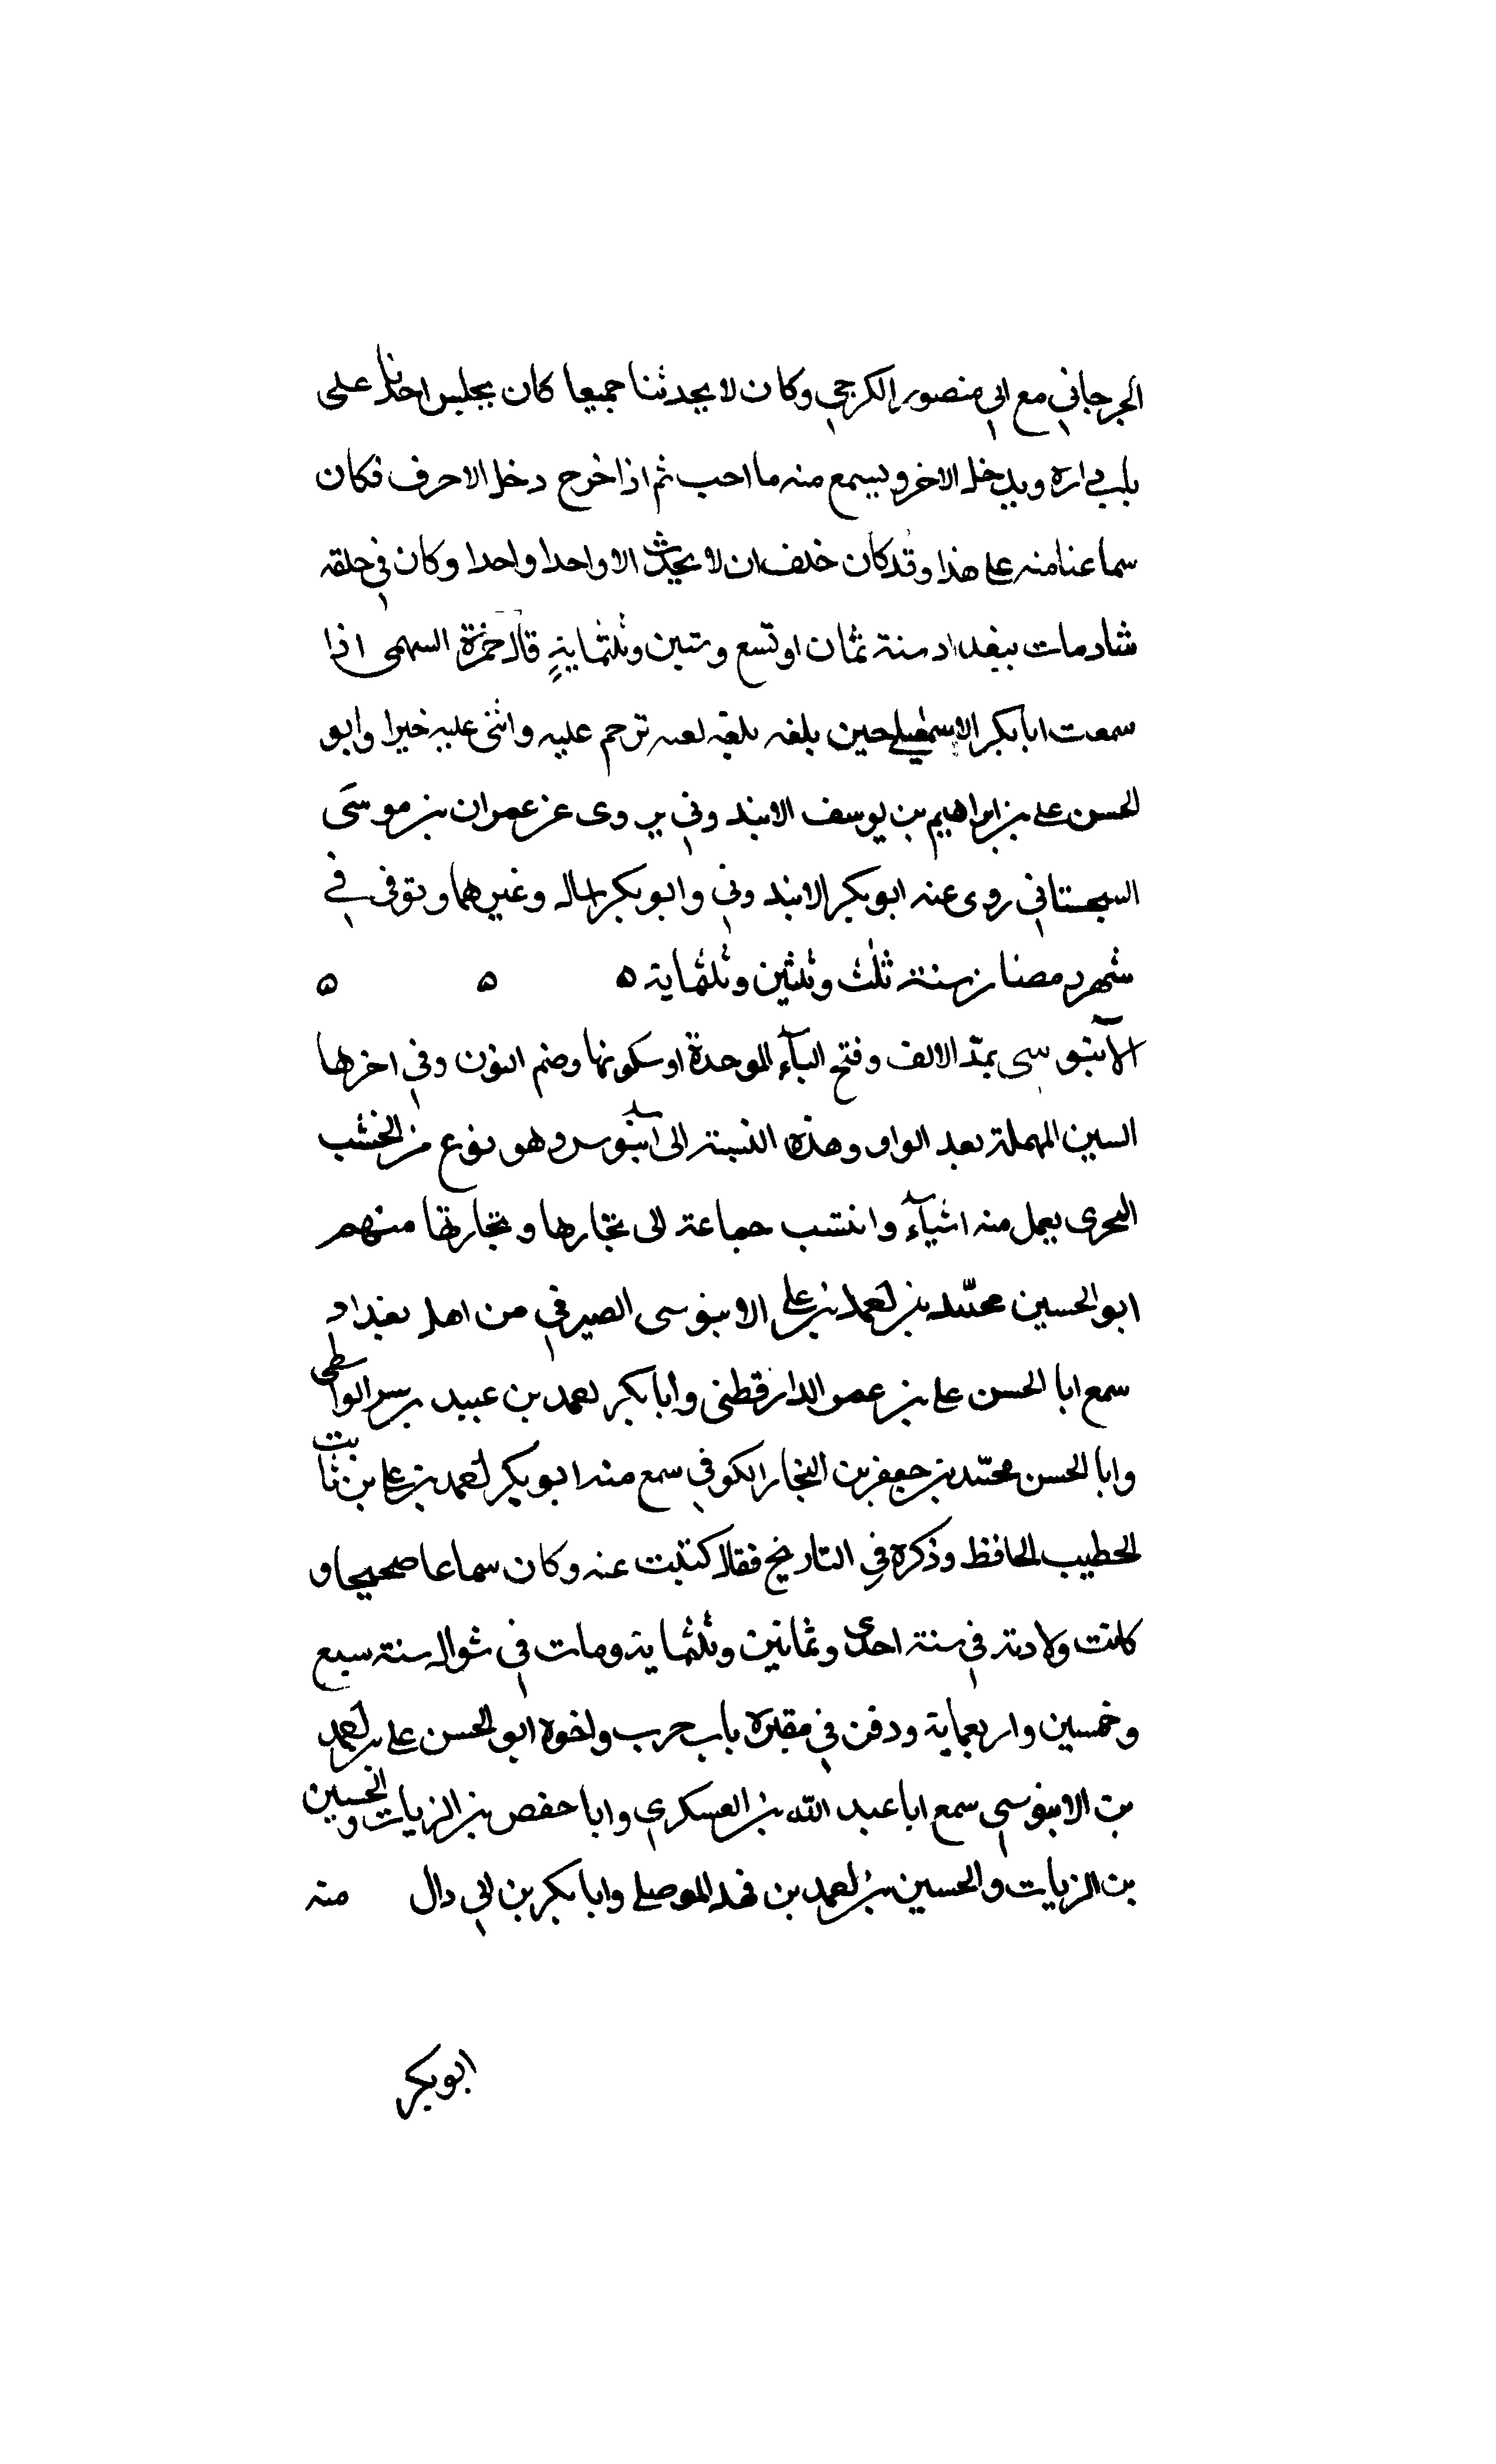 الجرجاني مع ابي منصور الكرجي وكان لا يحدثنا جميعا كان يجلس احدنا على
باب داره ويدخل الاخر ويسمع منه ما احب ثم اذا خرج دخل الاخر فكان
سماعنا منه على هذا وقد كان حلف ان لا يحدث الا واحدا واحدا وكان في خلقه
شا مات ببغداد سنة ثمان او تسع وستين وثلثماية قال حمزة السهمي اذا
سمعت ابا بكر الاسمعيلي حين بلغه نعيه ترحم عليه واثنى عليه خيرا وابو
الحسن علي بن ابراهيم بن يوسف الابندوني يروى عن عمران بن موسى
السجستاني روى عنه ابو بكر الابندوني وابو بكر وغيرهما وتوفى في
شهر رمضان سنة ثلث وثلثين وثلثماية ه ه ه
الآبنوسي بمد الالف وفتح الباء الموحدة او سكونها وضم النون وفي اخرها
السين المهملة بعد الواو وهذه النسبة الى آبنوس وهو نوع من الخشب
البحرى يعمل منه اشياء وانتسب جماعة الى نجارها وتجارتها منهم
ابو الحسين محمد بن احمد بن علي الابنوسى الصيرفي من اهل بغداد
سمع ابا الحسن على بن عمر الدارقطنى وابا بكر احمد بن عبيد بن الواسطى
وابا الحسن محمد بن جعفر بن النجار الكوفي سمع منه ابو بكر احمد بن على بن ثابت
الخطيب الحافظ وذكره في التاريخ فقال كتبت عنه وكان سماعا صحيحا و
كانت ولادته في سنة احدى وثمانين وثلثماية ومات في شوال سنة سبع
وخمسين واربعماية ودفن في مقبرة باب حرب واخوه ابو الحسن على بن احمد
بن الابنوسي سمع ابا عبد الله بن العسكري وابا حفص بن الزيات والحسين
بن الزيات والحسين بن احمد بن فهد الموصلي وابا بكر بن ابي دال منه
ابو بكر